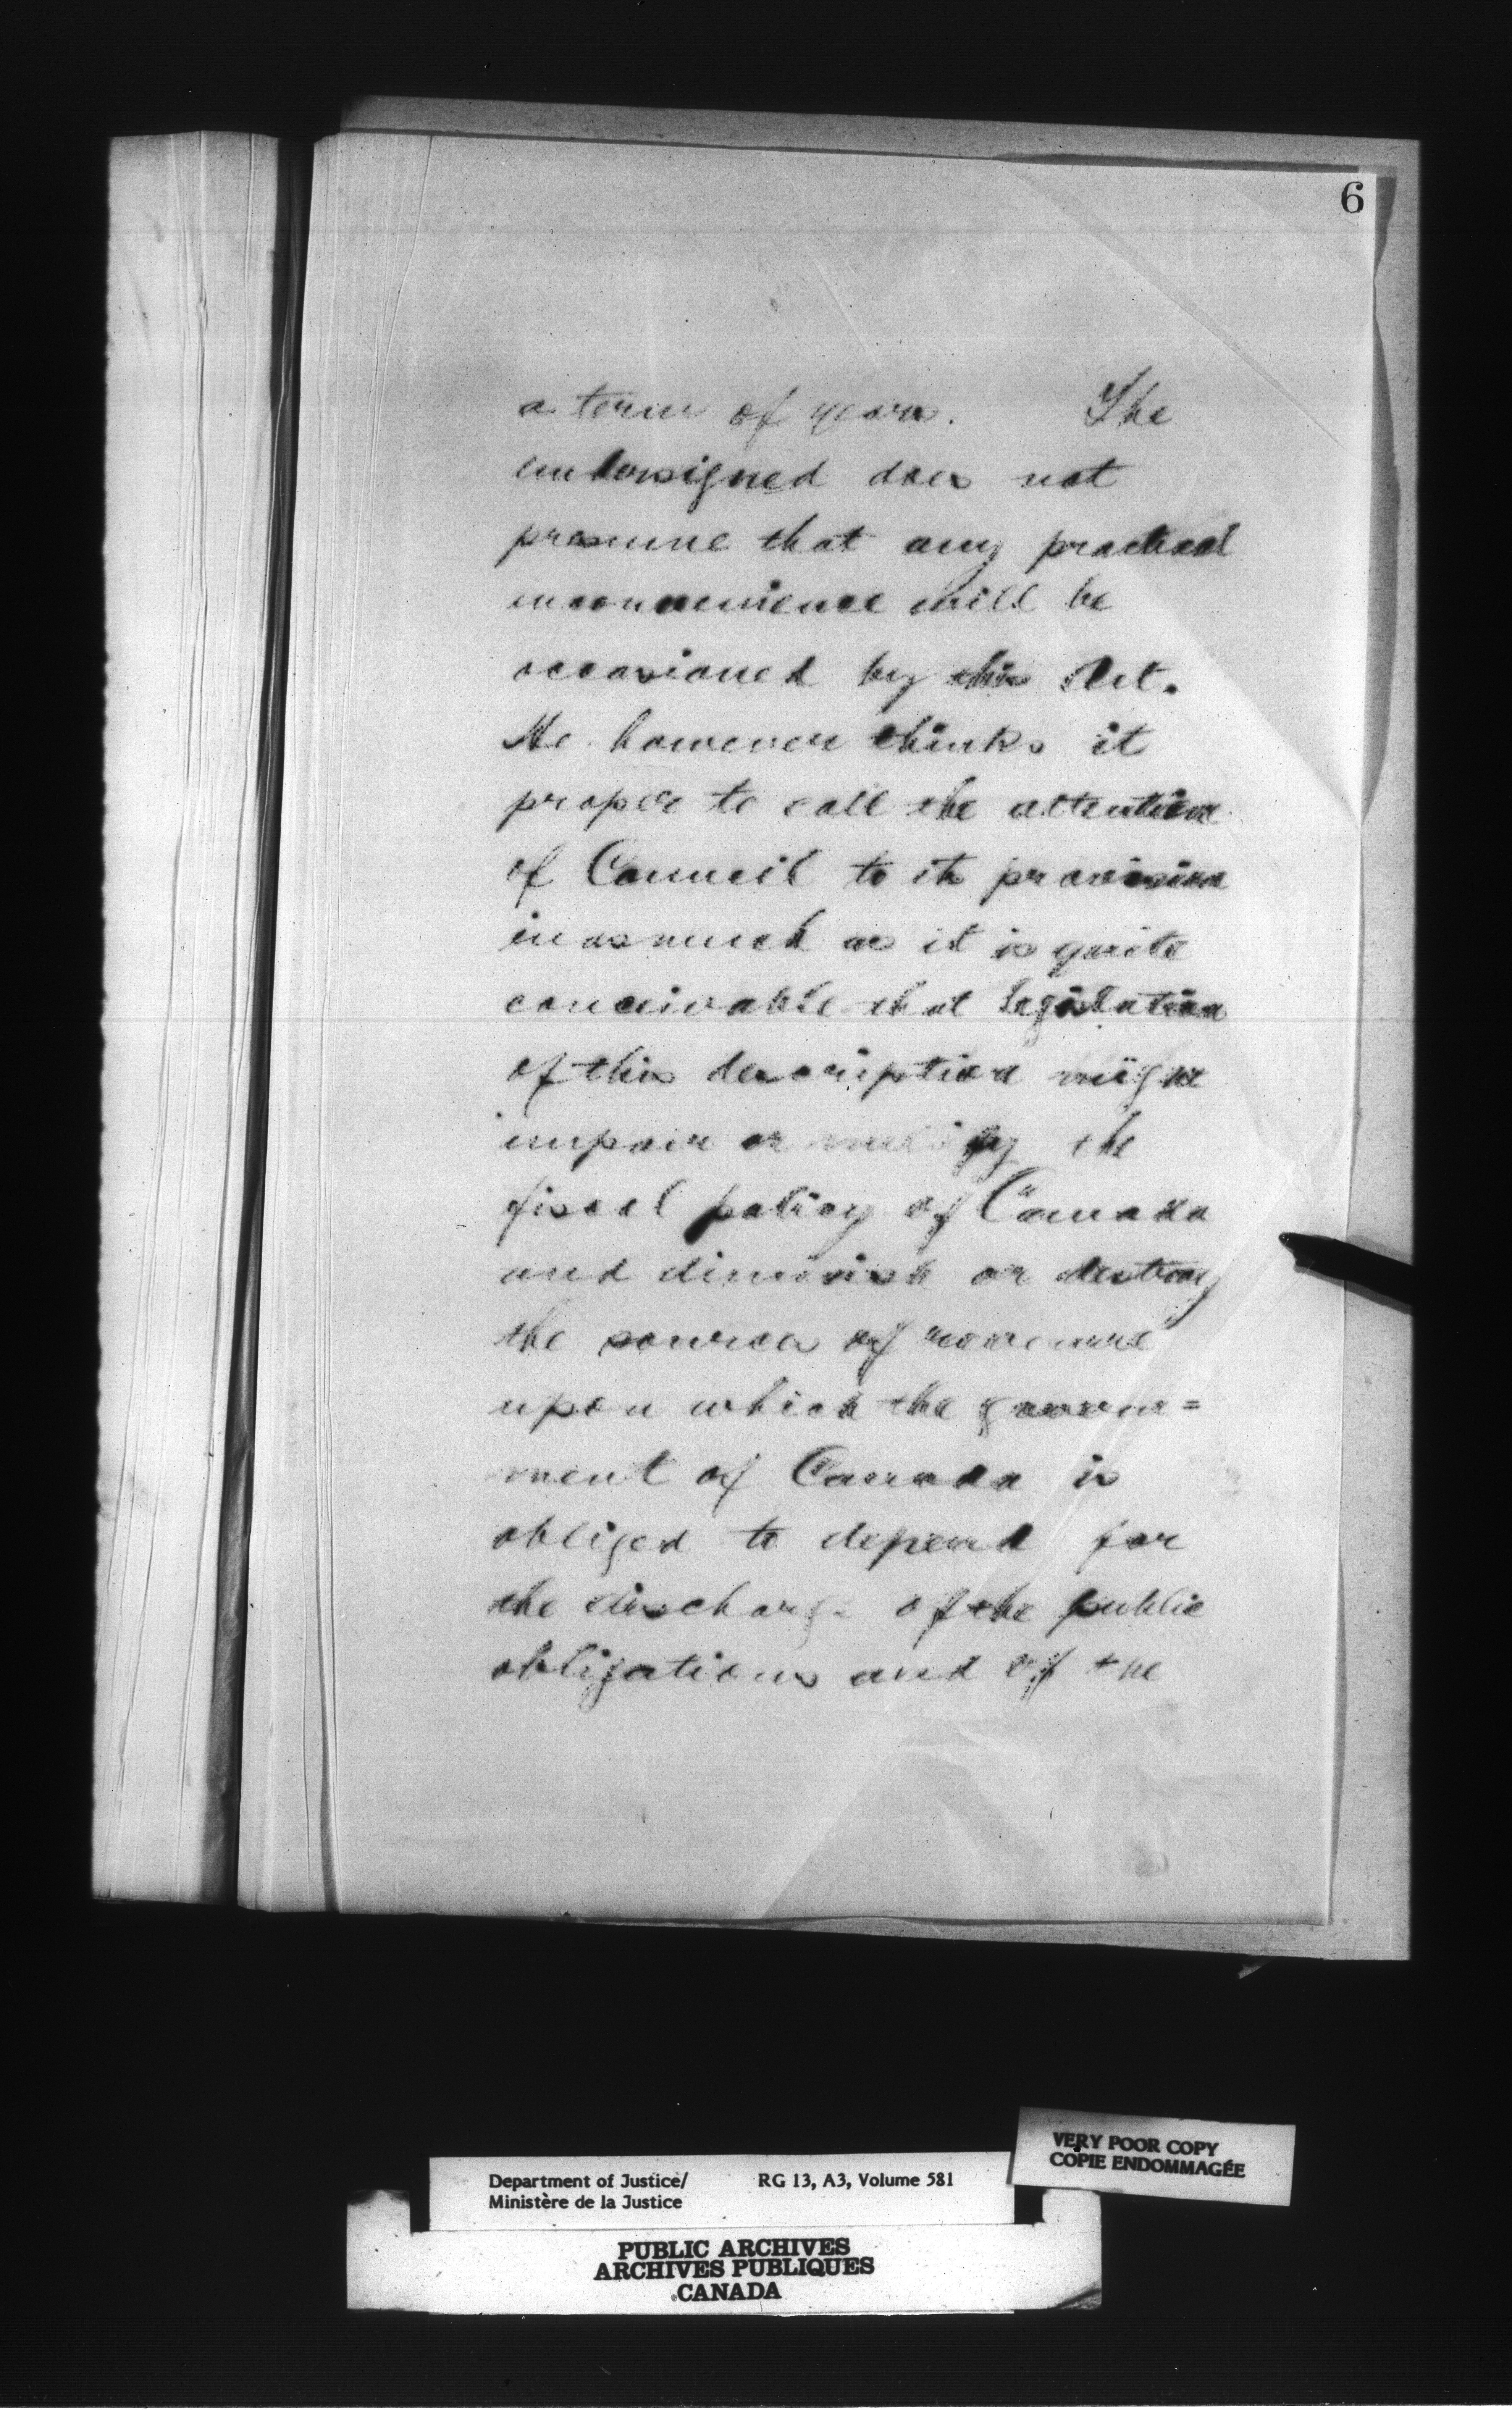 6
a term of years. The
undersigned does not
presume that any practical
inconvenience will be
occasioned by this Act.
He however thinks it
proper to call the attention
of Council to its provision
inasmuch as it is quite
conceivable that legislation
of this description might
impair or nullify the
fiscal policy of Canada
and diminish or destroy
the sources of revenue
upon which the govern=
ment of Canada is
obliged to depend for
the discharge of the public
obligations and of the
VERY POOR COPY
COPIE ENDOMMAGÉE
Department of Justice/ RG 13, A3, Volume 581
Ministère de la Justice
PUBLIC ARCHIVES
ARCHIVES PUBLIQUES
CANADA